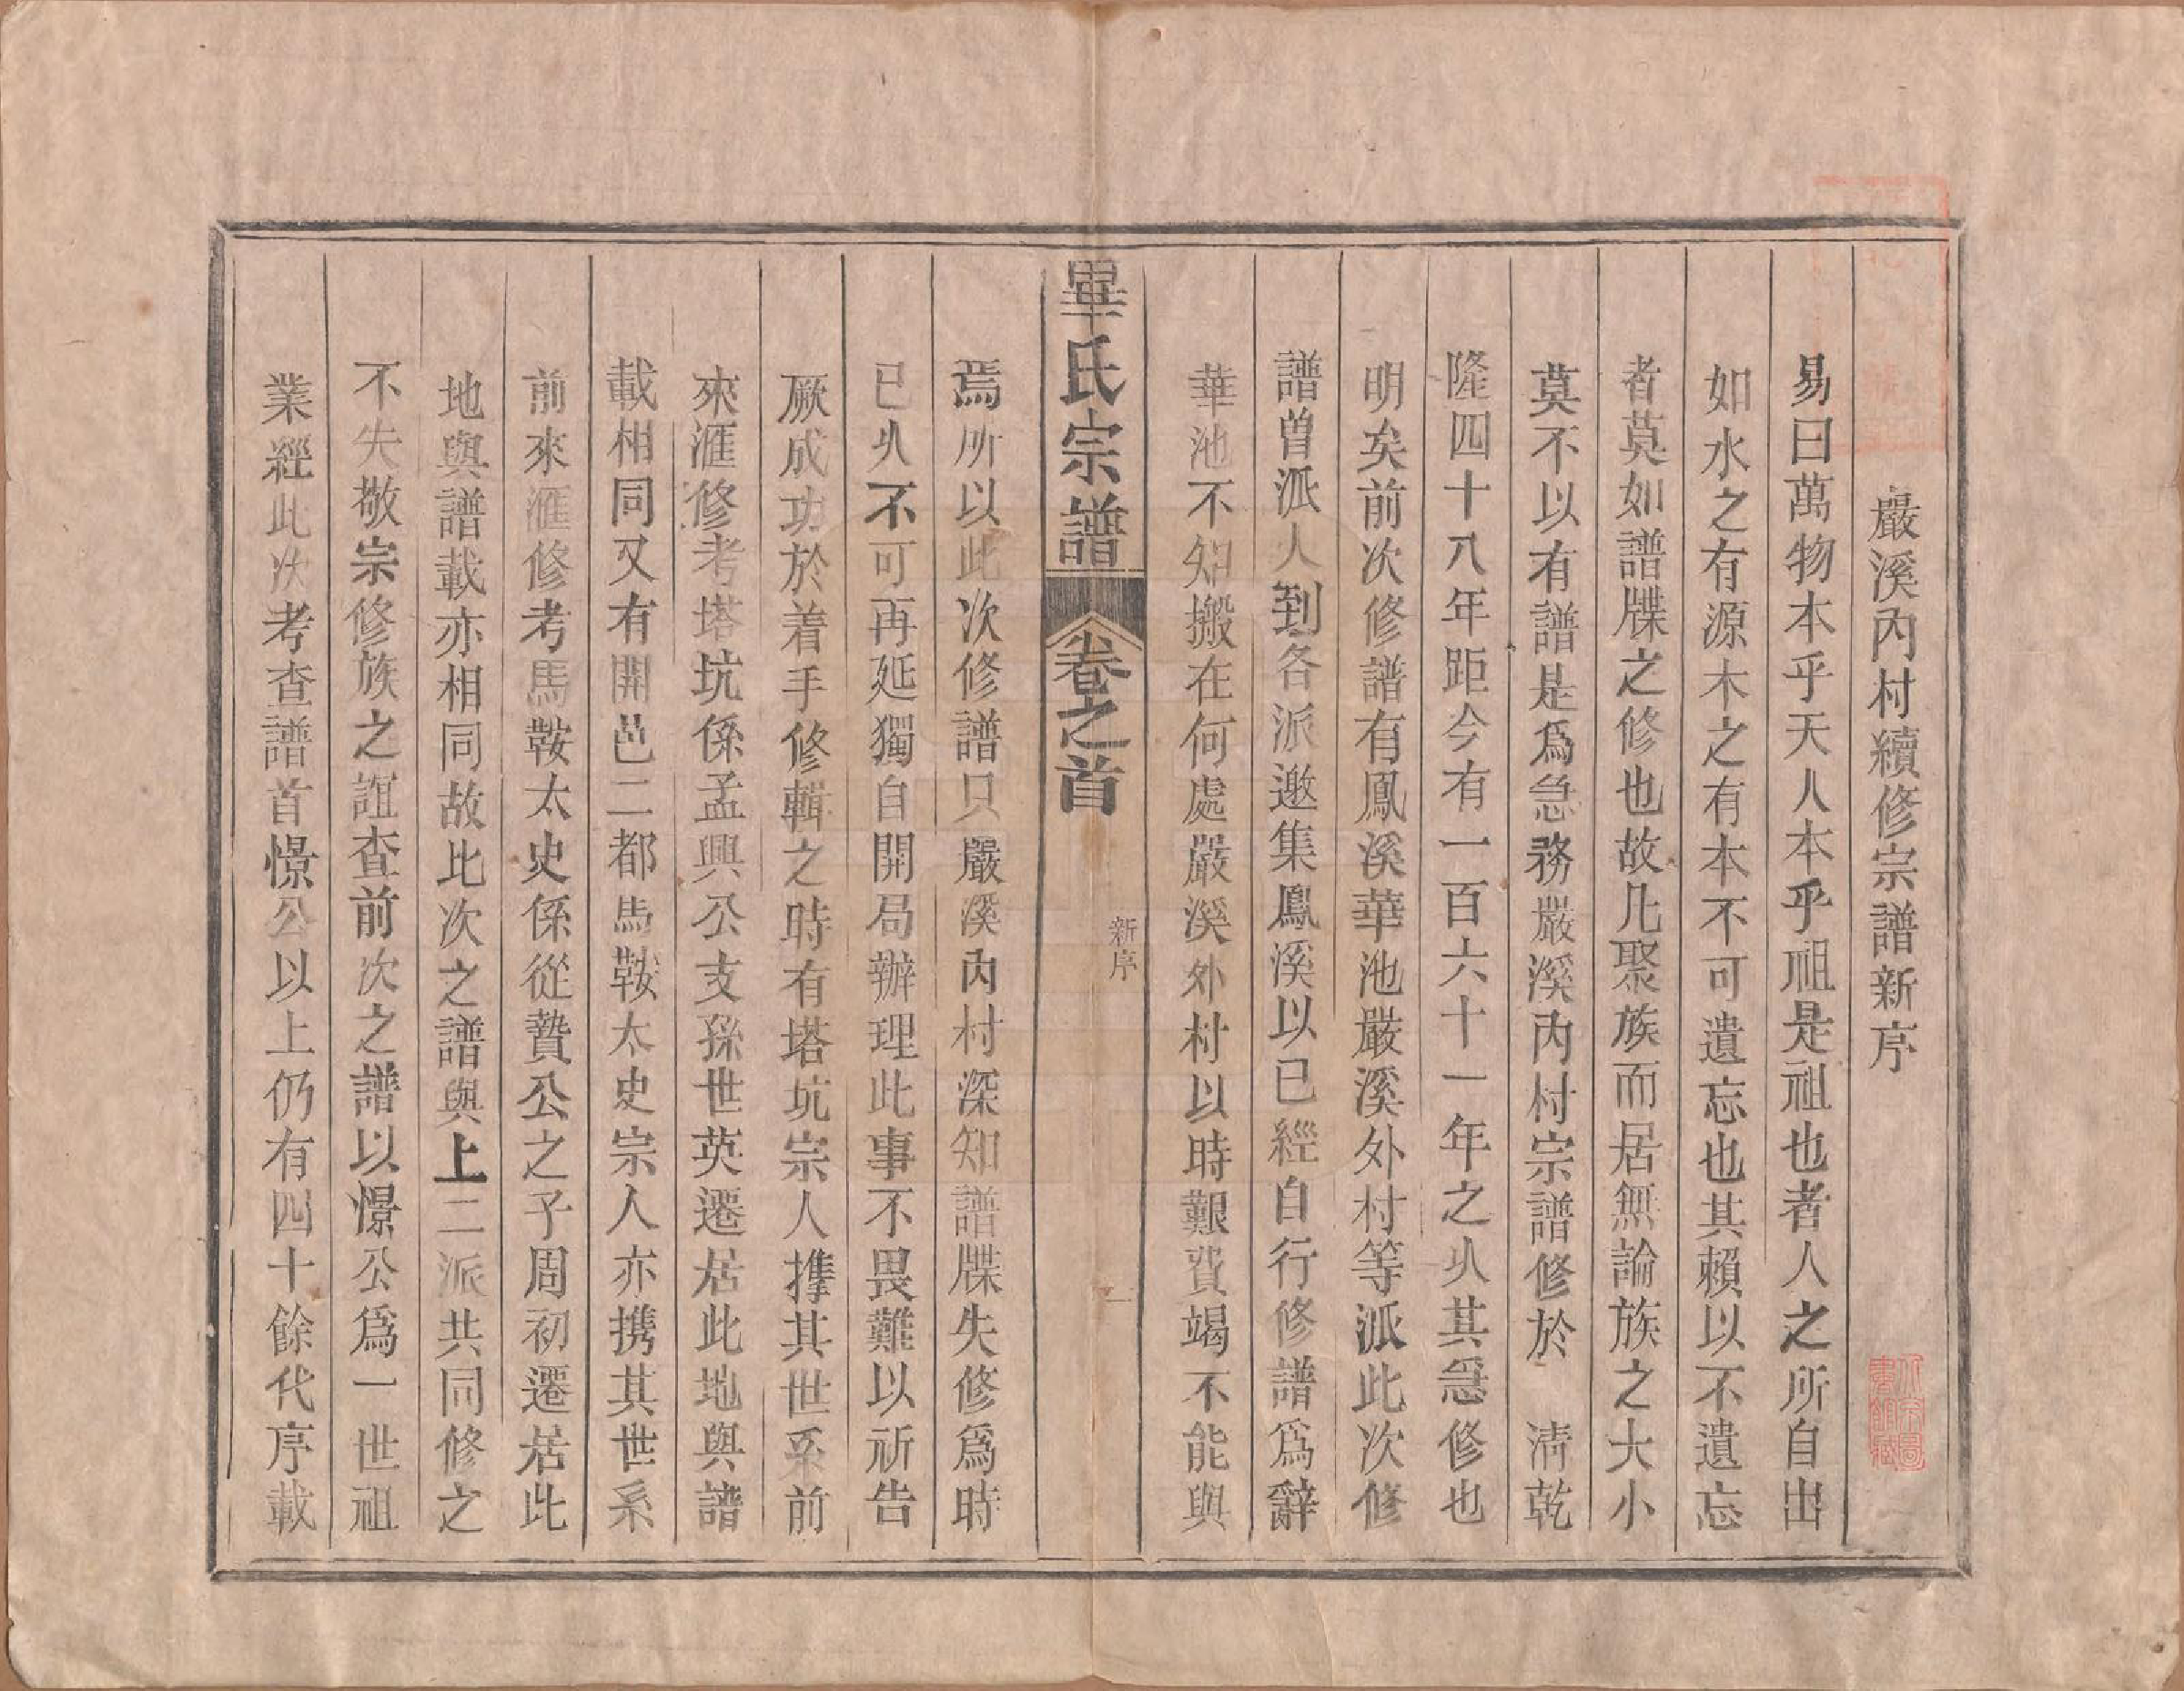 嚴溪內村續修宗譜新序
易曰萬物本乎天人本乎祖是祖也者人之所自出
如水之有源木之有本不可遺忘也其賴以不遺忘
者莫如譜牒之修也故凡聚族而居無論族之大小
莫不以有譜是爲急務嚴溪內村宗譜修於 清乾
隆四十八年距今有一百六十一年之久其急修也
明矣前次修譜有鳳溪華池嚴溪外村等派此次修
譜曾派人到各派邀集鳳溪以已經自行修譜爲辭
華池不知搬在何處嚴溪外村以時艱費竭不能與
畢氏宗譜 卷之首 新序 一
焉所以此次修譜只嚴溪內村深知譜牒失修爲時
已久不可再延獨自開局辦理此事不畏難以祈告
厥成功於着手修輯之時有塔坑宗人攜其世系前
來滙修考塔坑係孟興公支孫世英遷居此地與譜
載相同又有開邑二都馬鞍太史宗人亦携其世系
前來滙修考馬鞍太史係從贄公之子周初遷居此
地與譜載亦相同故此次之譜與上二派共同修之
不失敬宗修族之誼查前次之譜以憬公爲一世祖
業經此次考查譜首憬公以上仍有四十餘代序載